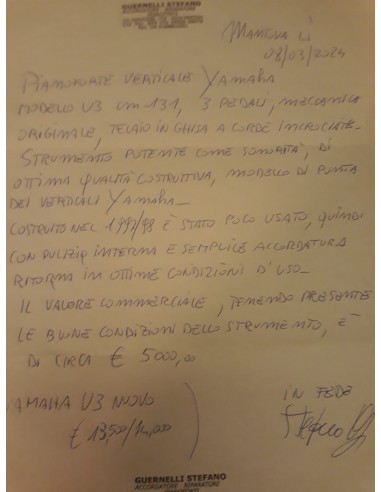 GUERNELLI STEFANO
ACCORDATORE RIPARATORE
MANTOVA LÌ
08/03/2024
PIANOFORTE VERTICALE YAMAHA
MODELLO U3 cm 131, 3 PEDALI, MECCANICA
ORIGINALE, TELAIO IN GHISA A CORDE INCROCIATE-
STRUMENTO POTENTE COME SONORITÀ, DI
OTTIMA QUALITÀ COSTRUTTIVA, MODELLO DI PUNTA
DEI VERTICALI YAMAHA-
COSTRUITO NEL 1997/98 È STATO POCO USATO, QUINDI
CON PULIZIA INTERNA E SEMPLICE ACCORDATURA
RITORNA IN OTTIME CONDIZIONI D'USO-
IL VALORE COMMERCIALE, TENENDO PRESENTE
LE BUONE CONDIZIONI DELLO STRUMENTO, È
DI CIRCA € 5000,00
YAMAHA U3 NUOVO
€ 13,500/14,000
IN FEDE
GUERNELLI STEFANO
ACCORDATORE RIPARATORE